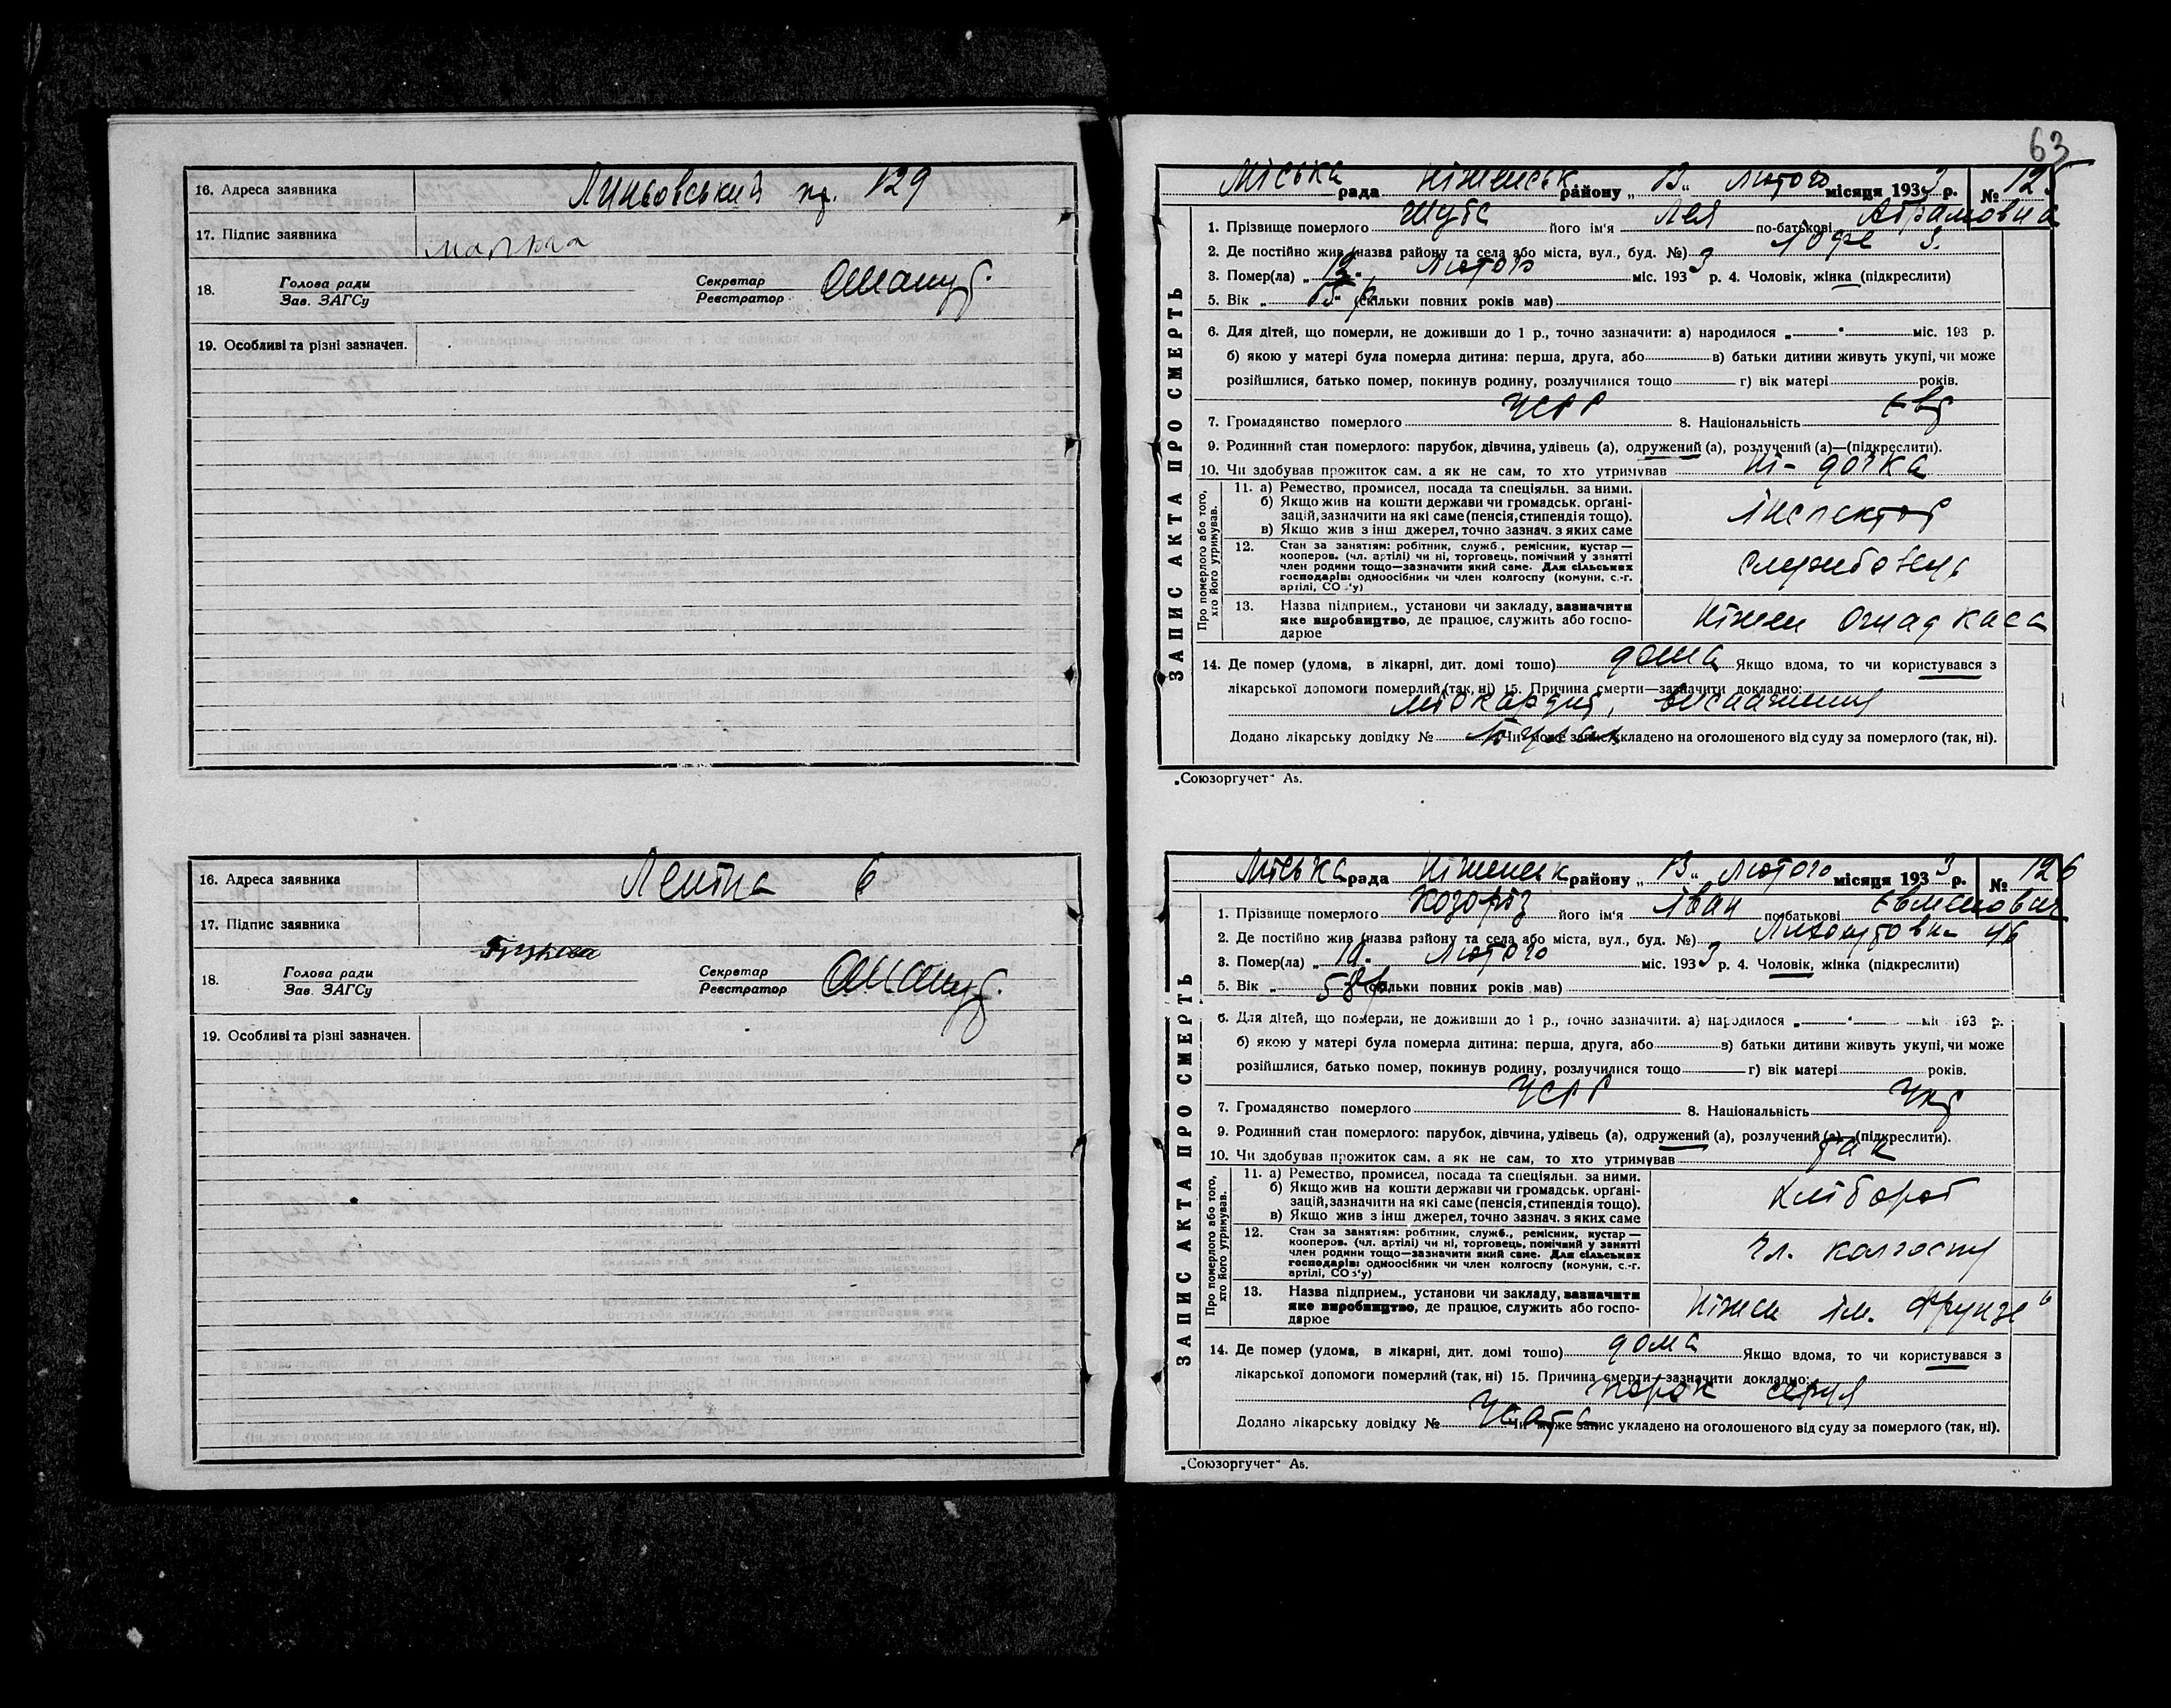 16. Адреса заявника Линьовський № 129
17. Підпис заявника
18. Голова ради
Зав. ЗАГСу
Секретар
Реєстратор
19. Особливі та різні зазначен.
16. Адреса заявника 6
17. Підпис заявника
18. Голова ради
Зав. ЗАГСу
Секретар
Реєстратор
19. Особливі та різні зазначен.
63
Міська рада Ніженськ району „ 13 “ Лютого місяця 1933 р. № 125
ЗАПИС АКТА ПРО СМЕРТЬ
1. Прізвище померлого Шуба його ім'я Лея по-батькові Абрамовна
2. Де постійно жив (назва району та села або міста, вул., буд. №) 3.
3. Помер(ла) „ 12 “ Лютого міс. 1933 р. 4. Чоловік, жінка (підкреслити)
5. Вік „ 65 “ (скільки повних років мав)
6. Для дітей, що померли, не доживши до 1 р., точно зазначити: а) народилося „ “ міс. 193 р.
б) якою у матері була померла дитина: перша, друга, або в) батьки дитини живуть укупі, чи може
розійшлися, батько помер, покинув родину, розлучилися тощо г) вік матері років.
7. Громадянство померлого УСРР 8. Національність Євр
9. Родинний стан померлого: парубок, дівчина, удівець (а), одружений (а), розлучений (а)—(підкреслити).
10. Чи здобував прожиток сам, а як не сам, то хто утримував ні - дочка
Про померлого або того, хто його утримував.
11. а) Ремество, промисел, посада та спеціяльн. за ними.
б) Якщо жив на кошти держави чи громадськ. органі-
зацій, зазначити на які саме (пенсія, стипендія тощо).
в) Якщо жив з інш джерел, точно зазнач. з яких саме
Інспектор
12. Стан за занятіям: робітник, служб., ремісник, кустар —
кооперов. (чл. артілі) чи ні, торговець, помічний у занятті
член родини тощо—зазначити який саме. Для сільських
господарів: одноосібник чи член колгоспу (комуни, с.-г.
артілі, СОЗ'у)
службовець
13. Назва підприєм., установи чи закладу, зазначити
яке виробництво, де працює, служить або госпо-
дарює
Ніжен Ощад каса
14. Де помер (удома, в лікарні, дит. домі тошо) дома Якщо вдома, то чи користувався з
лікарської допомоги померлий (так, ні) 15. Причина смерти—зазначити докладно:
міокардит, виснаження
Додано лікарську довідку № Чи може запис укладено на оголошеного від суду за померлого (так, ні).
„Союзоргучет“ А₅.
Міська рада Ніженськ району „ 13 “ Лютого місяця 1933 р. № 126
ЗАПИС АКТА ПРО СМЕРТЬ
1. Прізвище померлого Козоріз його ім'я Іван по батькові Евменович
2. Де постійно жив (назва району та села або міста, вул., буд. №) 46
3. Помер(ла) „ “ Лютого міс. 1933 р. 4. Чоловік, жінка (підкреслити)
5. Вік „ 58 р. (скільки повних років мав)
6. Для дітей, що померли, не доживши до 1 р., точно зазначити. а) народилося „ “ міс 193 р.
б) якою у матері була померла дитина: перша, друга, або в) батьки дитини живуть укупі, чи може
розійшлися, батько помер, покинув родину, розлучилися тощо г) вік матері років.
7. Громадянство померлого УСРР 8. Національність Укр
9. Родинний стан померлого: парубок, дівчина, удівець (а), одружений (а), розлучений (а)—(підкреслити).
10. Чи здобував прожиток сам, а як не сам, то хто утримував так
Про померлого або того, хто його утримував.
11. а) Ремество, промисел, посада та спеціяльн. за ними.
б) Якщо жив на кошти держави чи громадськ. органі-
зацій, зазначити на які саме (пенсія, стипендія тощо).
в) Якщо жив з інш джерел, точно зазнач. з яких саме
хлібороб
12. Стан за занятіям: робітник, служб., ремісник, кустар —
кооперов. (чл. артілі) чи ні, торговець, помічний у занятті
член родини тощо—зазначити який саме. Для сільських
господарів: одноосібник чи член колгоспу (комуни, с.-г.
артілі, СОЗ'у)
чл. колгоспу
13. Назва підприєм., установи чи закладу, зазначити
яке виробництво, де працює, служить або госпо-
дарює
Ніжен ім. Фрунзе
14. Де помер (удома, в лікарні, дит. домі тошо) дома Якщо вдома, то чи користувався з
лікарської допомоги померлий (так, ні) 15. Причина смерти—зазначити докладно:
порок серця
Додано лікарську довідку № Чи може запис укладено на оголошеного від суду за померлого (так, ні).
„Союзоргучет“ А₅.